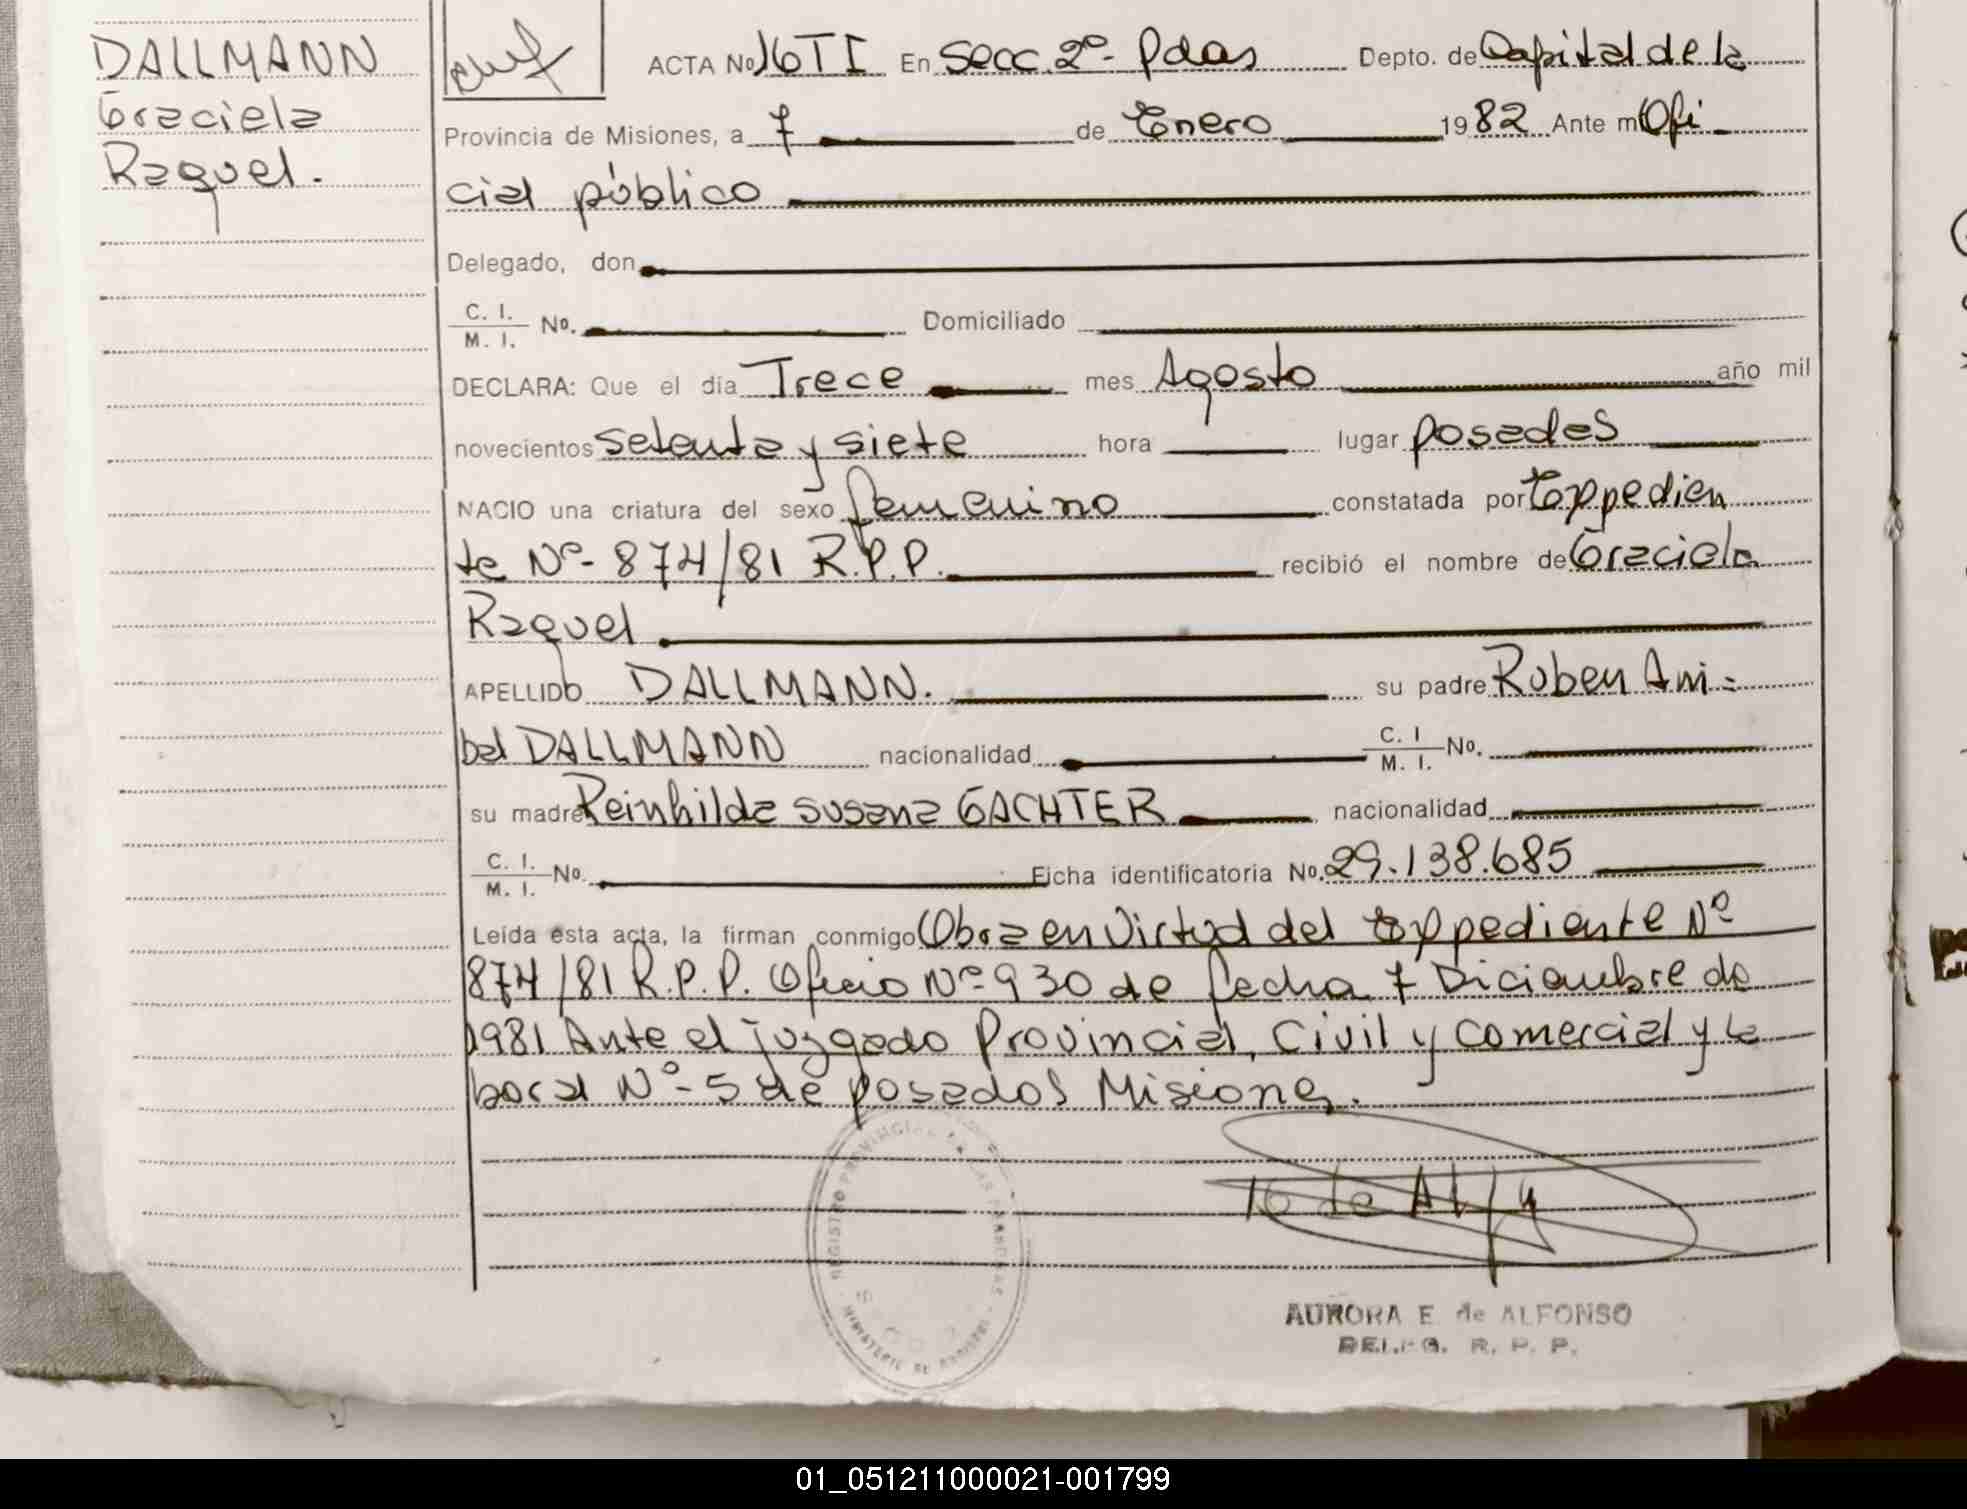 DALLMANN
Graciela
Raquel.
ACTA No 16 TI En Secc. 2º- Pdas Depto. de Capital de la
Provincia de Misiones, a 7 de Enero 1982 Ante mí Ofi-
cial público
Delegado, don
C. I.
M. I. No. Domiciliado
DECLARA: Que el día Trece mes Agosto año mil
novecientos setenta y siete hora lugar posadas
NACIO una criatura del sexo femenino constatada por Expedien
te Nº- 874/81 R.P.P. recibió el nombre de Graciela
Raquel
APELLIDO DALLMANN. su padre Ruben Ani=
bal DALLMANN nacionalidad C. I
M. I. No.
su madre Reinhilda Susana GACHTER nacionalidad
C. I.
M. I. No. Ficha identificatoria No. 29.138.685
Leída ésta acta, la firman conmigo Obra en Virtud del Expediente Nº
874/81 R.P.P. Oficio Nº- 930 de fecha 7 Diciembre de
1981 Ante el juzgado Provincial, Civil y Comercial y la
boral Nº- 5 de posadas Misiones.
REGISTRO PROVINCIAL DE LAS PERSONAS
AURORA E. de ALFONSO
DELEG. R. P. P.
01_051211000021-001799